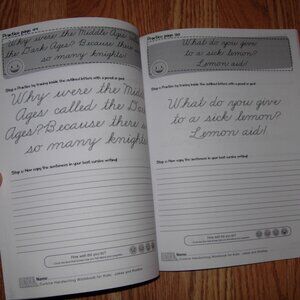 Practice page 49
Why were the Middle Ages
the Dark Ages? Because there
so many knights!
Step 1: Practice by tracing inside the outlined letters with a pencil or pen!
Why were the Mid
Ages called the Da
Ages? Because there
so many knight
Step 2: Now copy the sentences in your best cursive writing!
How well did you do?
Name
Cursive Handwriting Workbook for Kids: Jokes and Riddles
Practice page 50
What do you give
to a sick lemon?
Lemon aid!
Step 1: Practice by tracing inside the outlined letters with a pencil or pen!
What do you give
to a sick lemon?
Lemon aid!
Step 2: Now copy the sentences in your best cursive writing!
How well did you do?
Name
Cursive Handwriting Workbook for Kids: Jokes and Riddles